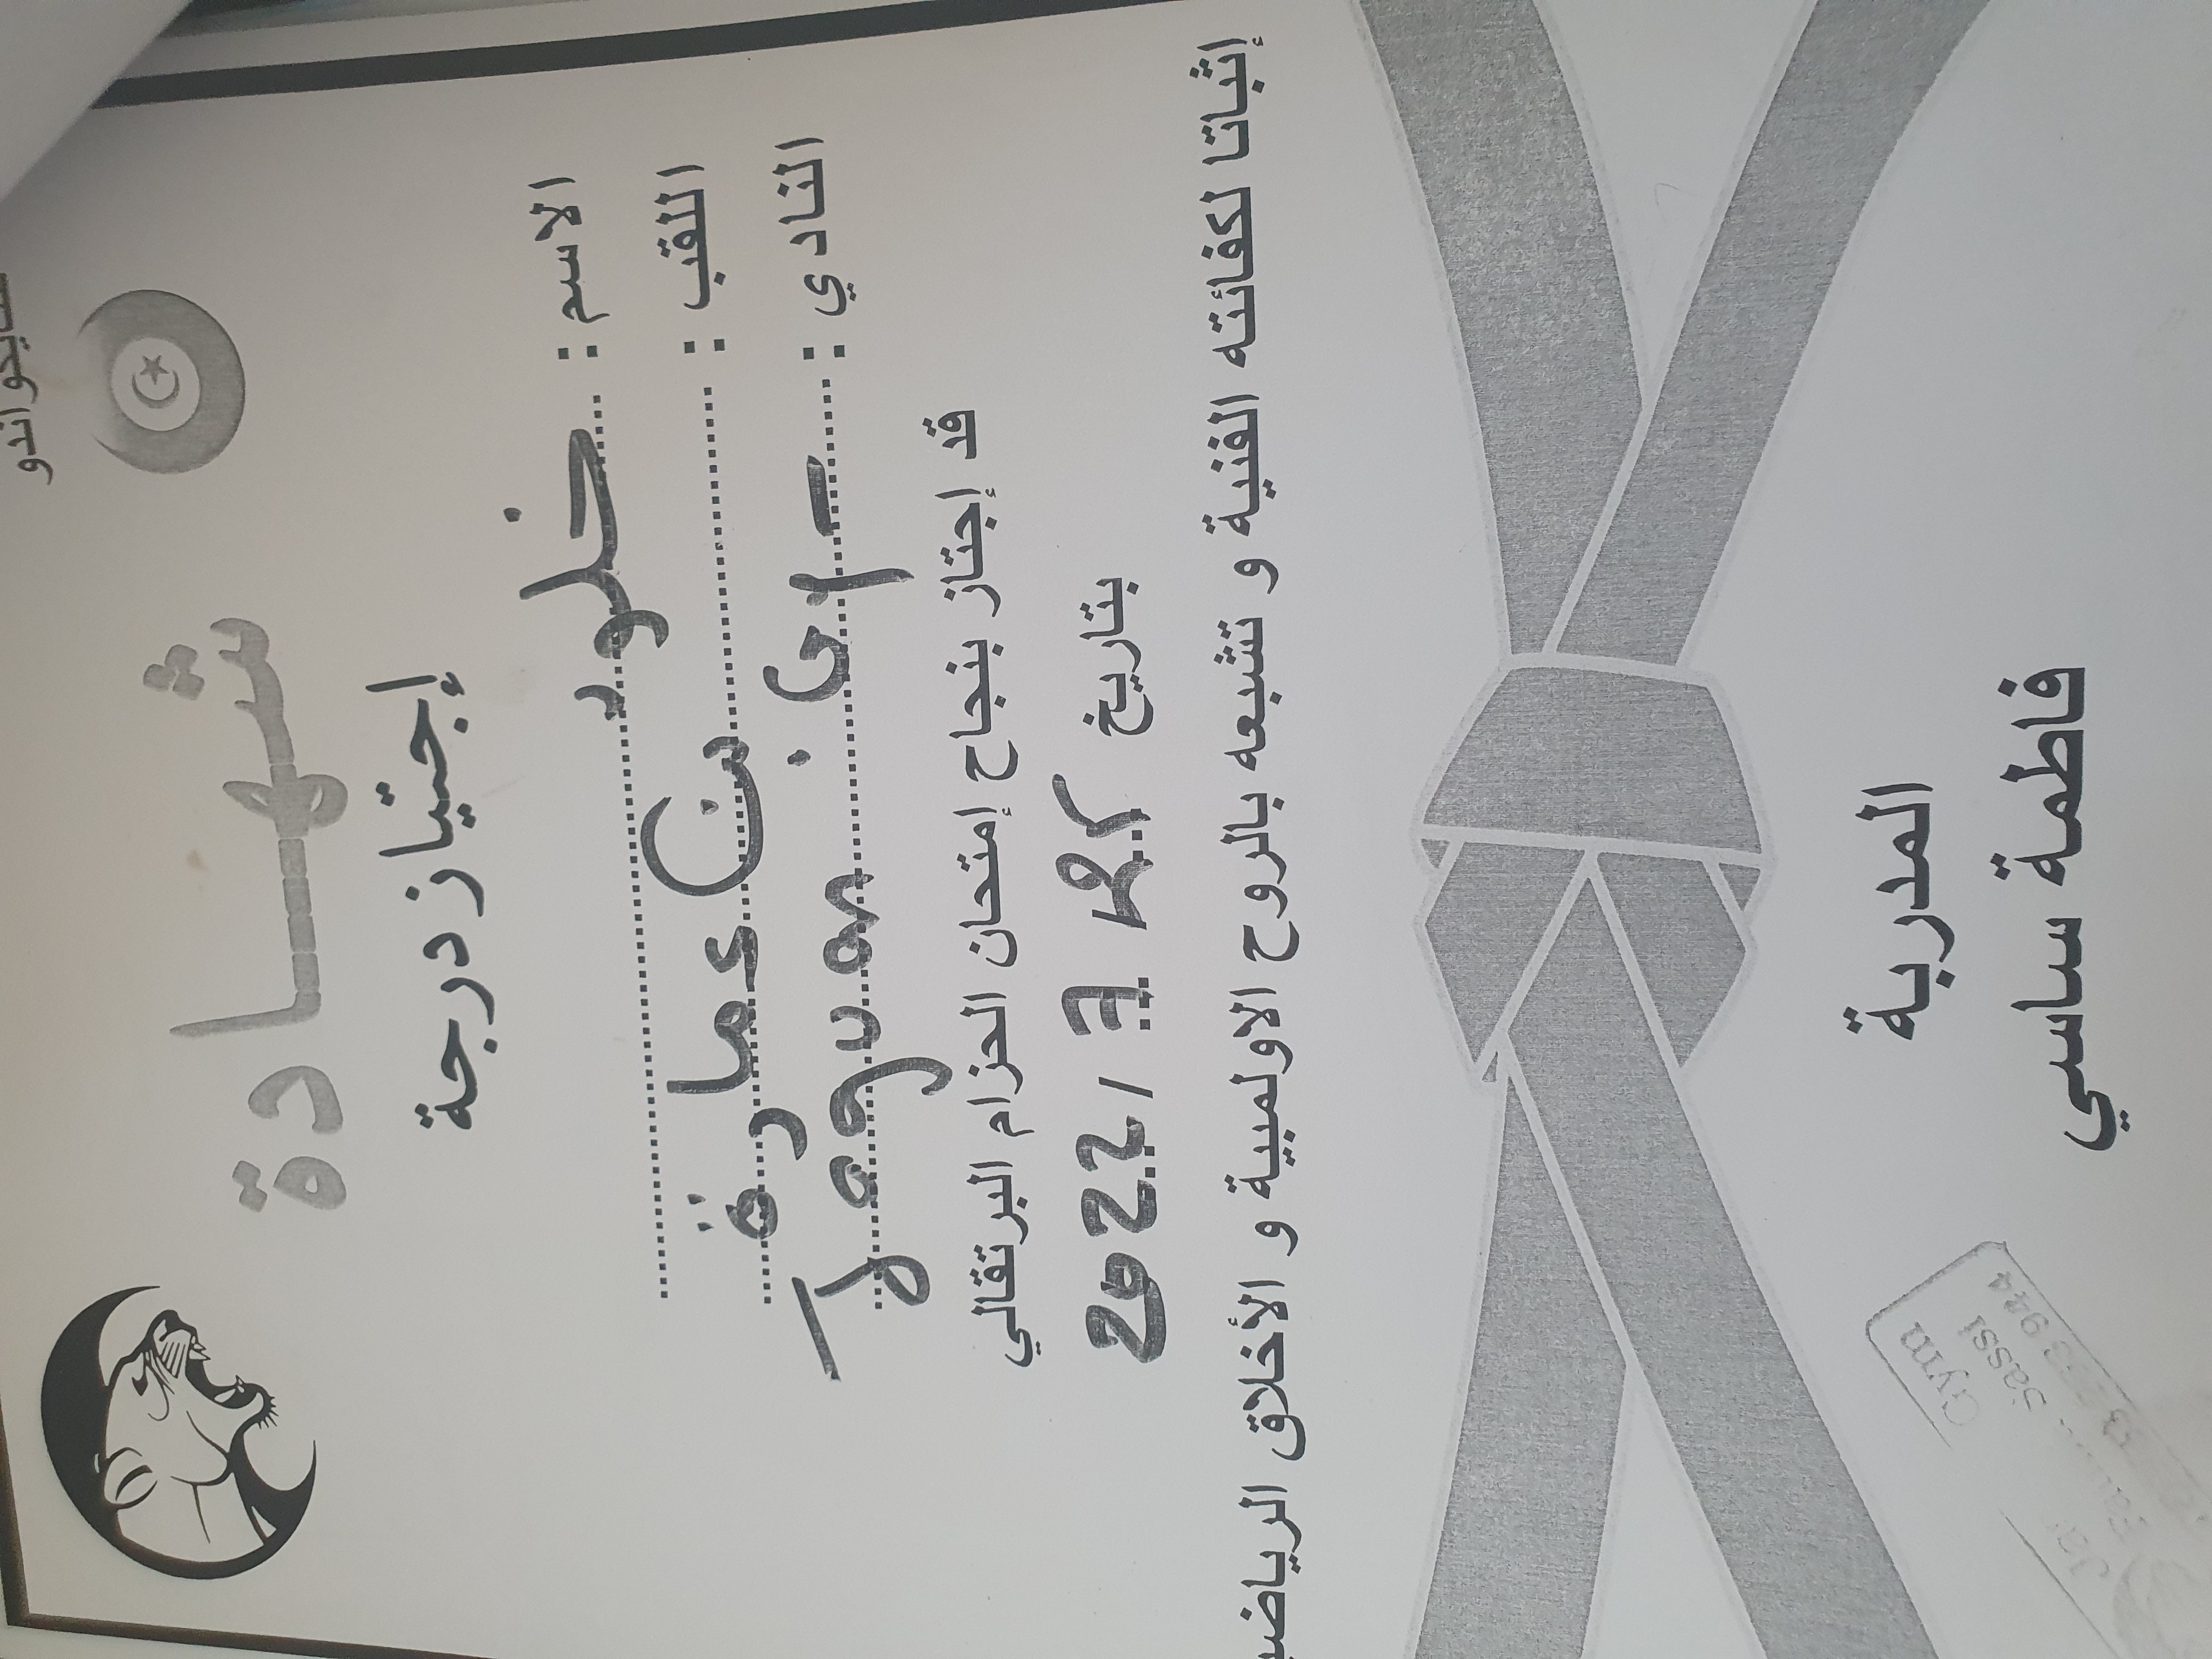 تايكواندو
شهــــادة
إجتياز درجة
الاسم : خلود
اللقب : بن عمارة
النادي :
قد إجتاز بنجاح إمتحان الحزام البرتقالي
بتاريخ 2022 / 7 /
إثباتا لكفائته الفنية و تشبعه بالروح الاولمبية و الأخلاق
المدربة
فاطمة ساسي
Gym
Sassi